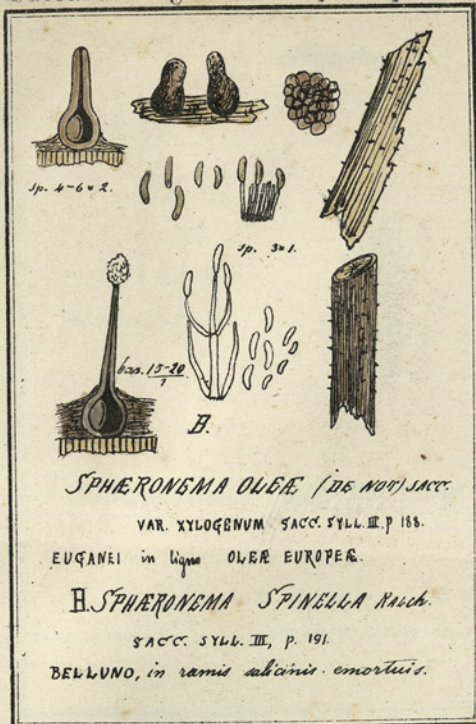 sp. 4-6 × 2.
sp. 3 × 1.
bas. 15-20
1
B.
SPHÆRONEMA OLEÆ (DE NOT) SACC.
VAR. XYLOGENUM SACC. SYLL. III. P 188.
EUGANEI in ligno OLEÆ EUROPEÆ.
B. SPHÆRONEMA SPINELLA Kalch.
SACC. SYLL. III, p. 191.
BELLUNO, in ramis salicinis emortuis.